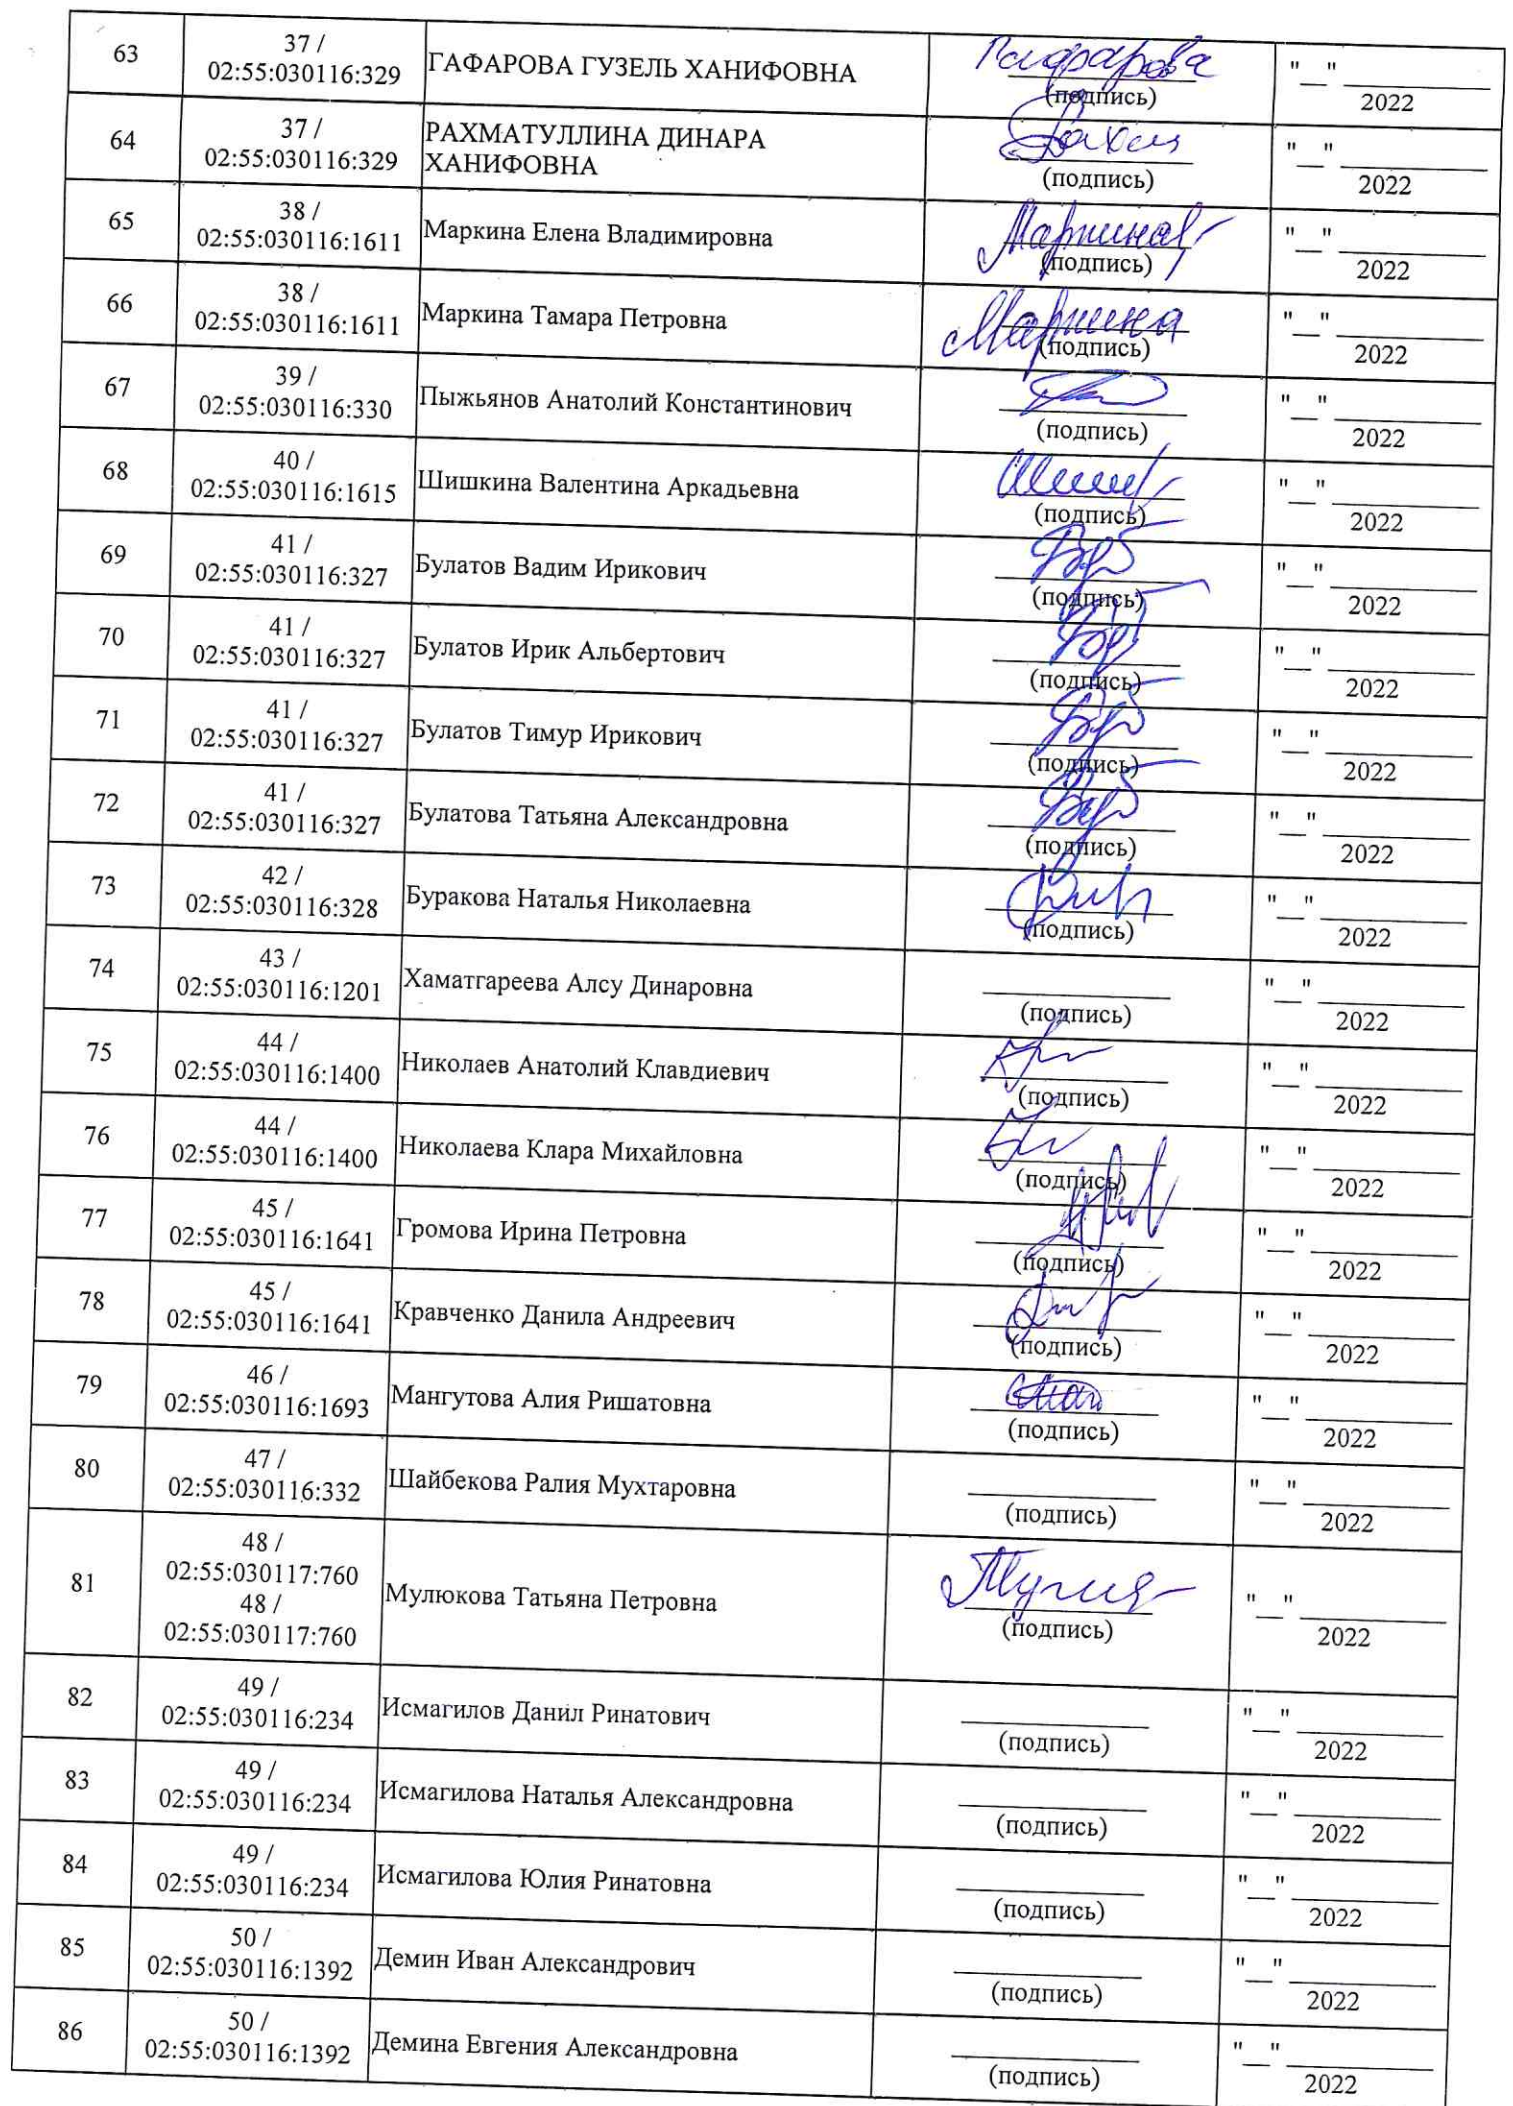 63
37 /
02:55:030116:329
ГАФАРОВА ГУЗЕЛЬ ХАНИФОВНА
Гафарова
(подпись)
"__" ________
2022
64
37 /
02:55:030116:329
РАХМАТУЛЛИНА ДИНАРА
ХАНИФОВНА
(подпись)
"__" ________
2022
65
38 /
02:55:030116:1611
Маркина Елена Владимировна
(подпись)
"__" ________
2022
66
38 /
02:55:030116:1611
Маркина Тамара Петровна
Маркина
(подпись)
"__" ________
2022
67
39 /
02:55:030116:330
Пыжьянов Анатолий Константинович
(подпись)
"__" ________
2022
68
40 /
02:55:030116:1615
Шишкина Валентина Аркадьевна
(подпись)
"__" ________
2022
69
41 /
02:55:030116:327
Булатов Вадим Ирикович
(подпись)
"__" ________
2022
70
41 /
02:55:030116:327
Булатов Ирик Альбертович
(подпись)
"__" ________
2022
71
41 /
02:55:030116:327
Булатов Тимур Ирикович
(подпись)
"__" ________
2022
72
41 /
02:55:030116:327
Булатова Татьяна Александровна
(подпись)
"__" ________
2022
73
42 /
02:55:030116:328
Буракова Наталья Николаевна
(подпись)
"__" ________
2022
74
43 /
02:55:030116:1201
Хаматгареева Алсу Динаровна
(подпись)
"__" ________
2022
75
44 /
02:55:030116:1400
Николаев Анатолий Клавдиевич
(подпись)
"__" ________
2022
76
44 /
02:55:030116:1400
Николаева Клара Михайловна
(подпись)
"__" ________
2022
77
45 /
02:55:030116:1641
Громова Ирина Петровна
(подпись)
"__" ________
2022
78
45 /
02:55:030116:1641
Кравченко Данила Андреевич
(подпись)
"__" ________
2022
79
46 /
02:55:030116:1693
Мангутова Алия Ришатовна
(подпись)
"__" ________
2022
80
47 /
02:55:030116:332
Шайбекова Ралия Мухтаровна
(подпись)
"__" ________
2022
81
48 /
02:55:030117:760
48 /
02:55:030117:760
Мулюкова Татьяна Петровна
(подпись)
"__" ________
2022
82
49 /
02:55:030116:234
Исмагилов Данил Ринатович
(подпись)
"__" ________
2022
83
49 /
02:55:030116:234
Исмагилова Наталья Александровна
(подпись)
"__" ________
2022
84
49 /
02:55:030116:234
Исмагилова Юлия Ринатовна
(подпись)
"__" ________
2022
85
50 /
02:55:030116:1392
Демин Иван Александрович
(подпись)
"__" ________
2022
86
50 /
02:55:030116:1392
Демина Евгения Александровна
(подпись)
"__" ________
2022